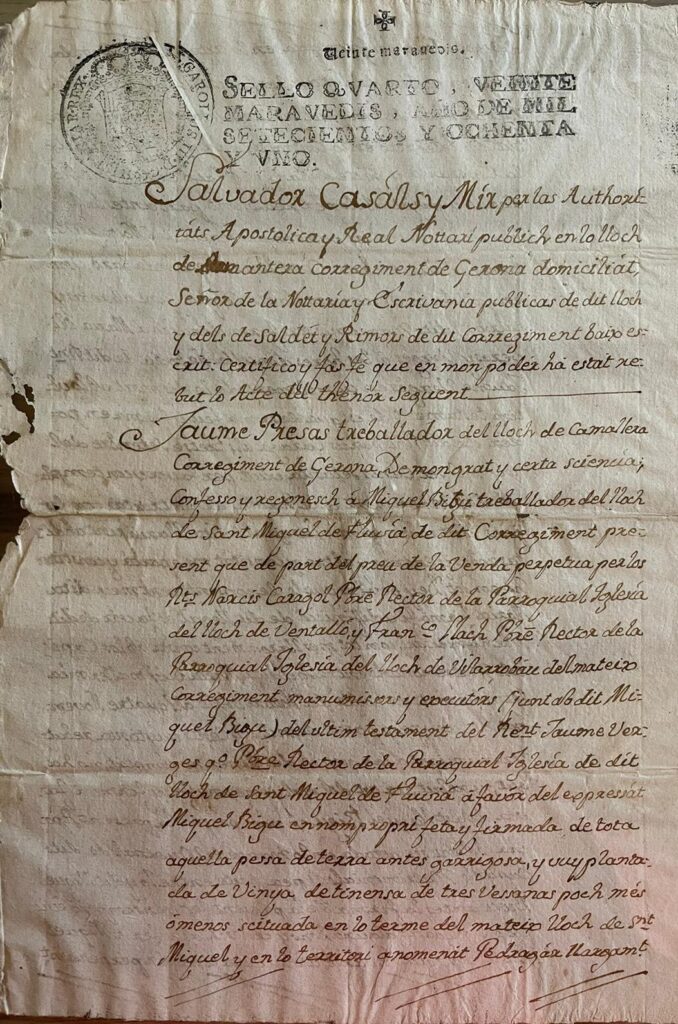 Veinte maravedis.
SELLO QVARTO, VEINTE
MARAVEDIS, AÑO DE MIL
SETECIENTOS Y OCHENTA
Y VNO.
Salvador Casáls y Mir per las Authori-
táts Apostolica y Real Nottari publich en lo lloch
de mantera Corregiment de Gerona domiciliát,
Señor de la Nottaria y Escrivania publicas de dit lloch
y dels de Saldet y Rimors de dit Corregiment baix es-
crit: Certifico y fas fe que en mon poder ha estat re-
but lo Acte del thenor Seguent
Jaume Presas treballador del lloch de Camallera
Corregiment de Gerona, De mon grat y certa sciencia;
Confesso y regonesch á Miquel Bigu treballador del lloch
de Sant Miquel de Fluviá de dit Corregiment pre-
sent que de part del preu de la Venda perpetua per los
Rts. Narcis Caragol Pbre. Rector de la Parroquial Iglesia
del lloch de Ventalló, y Franco. Llach Pbre. Rector de la
Parroquial Iglesia del lloch de Vilarrobáu del mateix
Corregiment manumissors y executórs (junt ab dit Mi-
quel Bigu) del ultim testament del Rent. Jaume Ver-
ges qo. Pbre. Rector de la Parroquial Iglesia de dit
lloch de Sant Miquel de Fluviá á favór del expressát
Miquel Bigu en nom propri feta y firmada, de tota
aquella pessa de terra antes garrigosa, y vuy planta-
da de Vinya de tinensa de tres Vessanas poch més
ó menos scituada en lo terme del mateix lloch de Snt.
Miquel y en lo territori anomenát Pedragár llargamt.